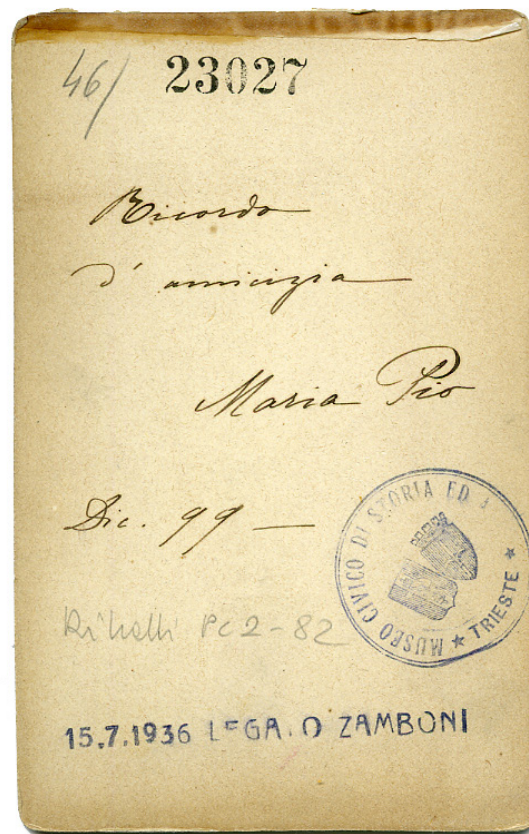 46/ 23027
Ricordo
d' amicizia
Maria Pio
Dic. 99 —
MUSEO CIVICO DI STORIA ED A
★ TRIESTE ★
Pc 2-82
15.7.1936 LEGA.O ZAMBONI